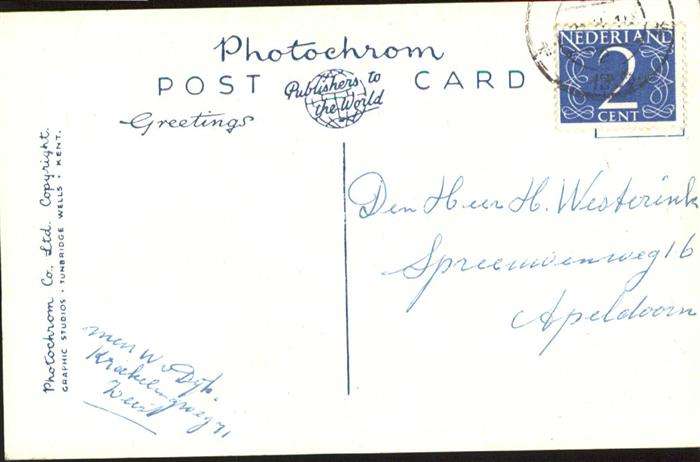 Photochrom
POST CARD
Publishers to
the World
Greetings
NEDERLAND
2
CENT
Photochrom Co. Ltd. Copyright.
GRAPHIC STUDIOS • TUNBRIDGE WELLS • KENT.
Den Heer H. Westerink
Spreeuwenweg 16
Apeldoorn
W v Dyk.
Krakelingweg 71
Zeist